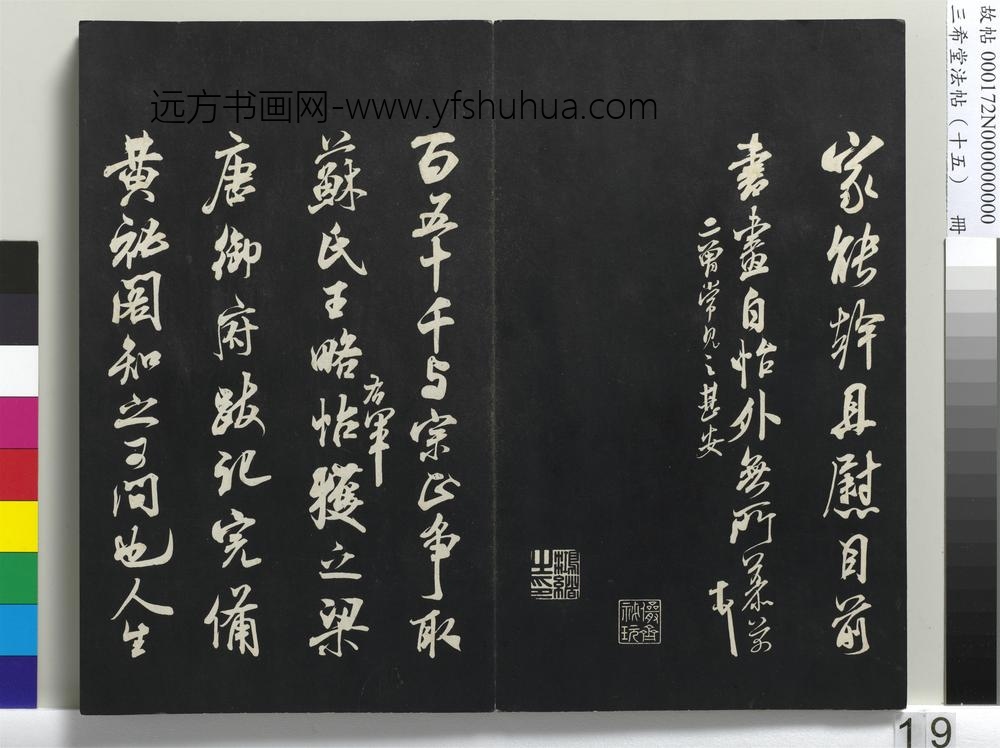 远方书画网-www.yfshuhua.com
故帖 000172N000000000
三希堂法帖（十五） 冊
家能幹且慰目前
書畫自怡外無所慕芾
二曾常見之甚安
百五十千与宗正爭取
蘇氏王略帖獲之梁
右軍
唐御府跋記完備
黃祕閣知之可問也人生
19